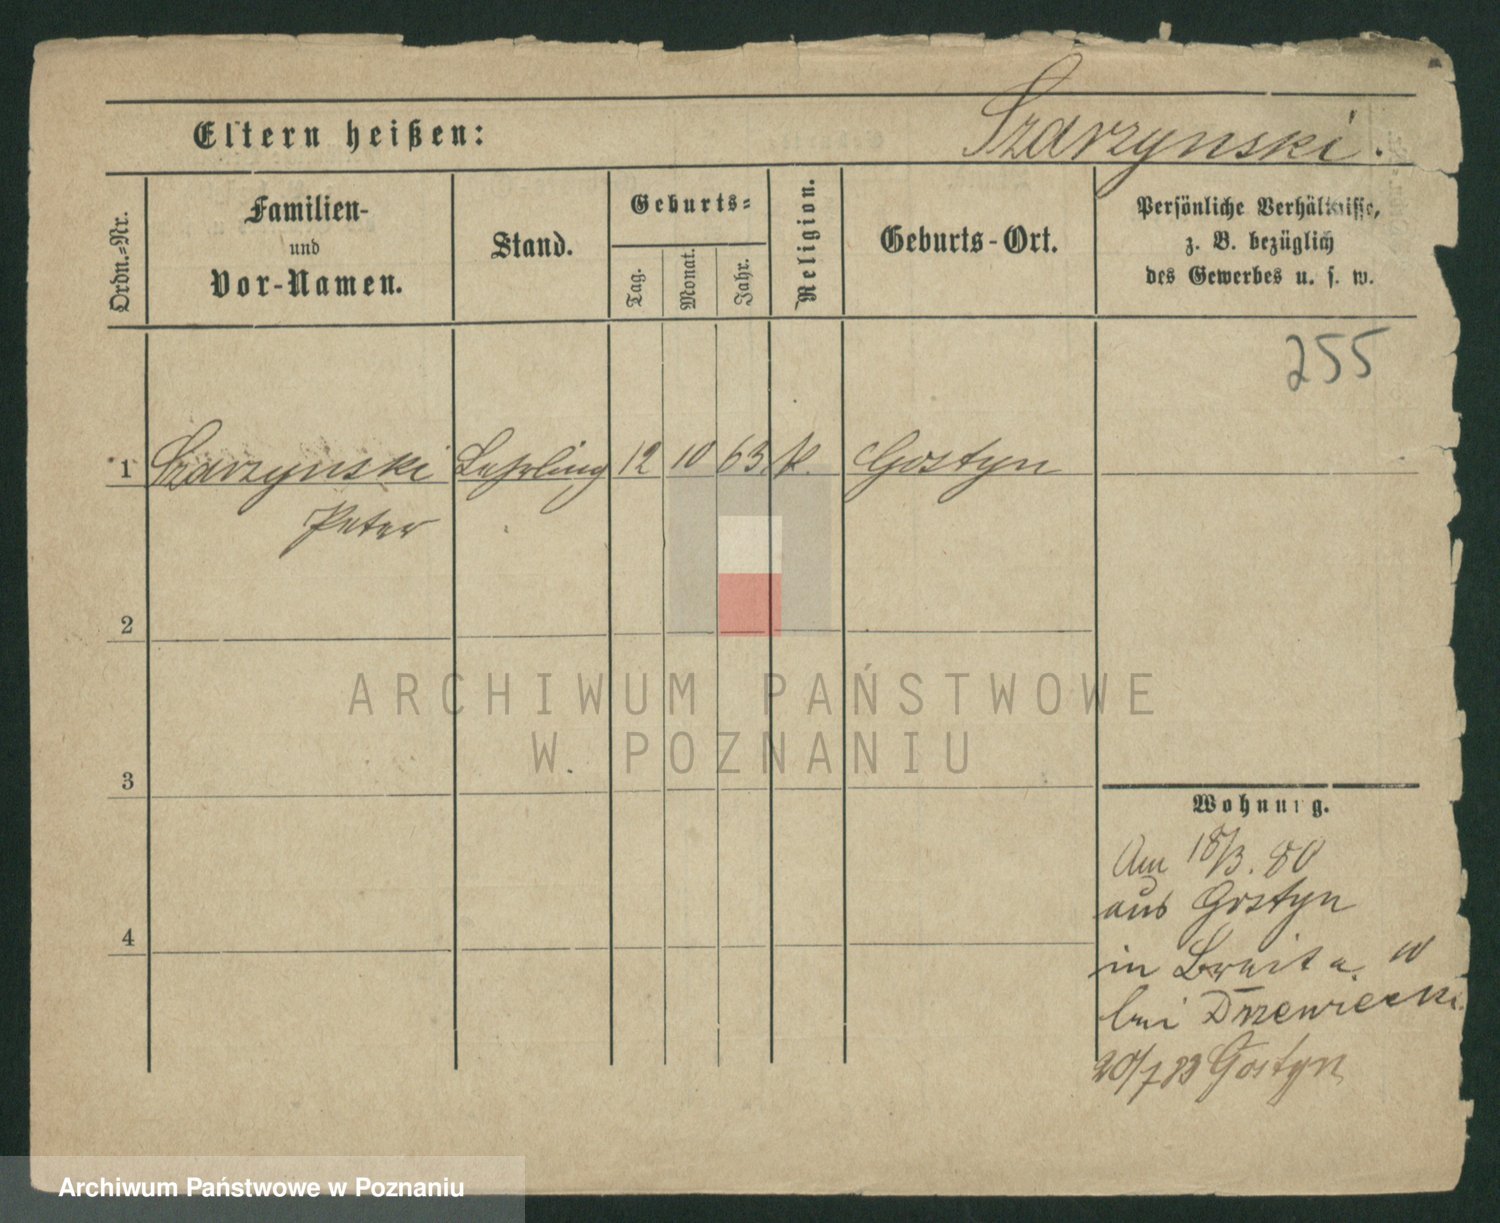 Eltern heißen:
Szarzynski.
Ordn.-Nr.
Familien-
und
Vor-Namen.
Stand.
Geburts-
Tag.
Monat.
Jahr.
Religion.
Geburts-Ort.
Persönliche Verhältnisse,
z. B. bezüglich
des Gewerbes u. s. w.
255
1 Szarzynski Lehrling 12 10 63 k. Gostyn
Peter
2
3
4
Wohnung.
Am 18/3. 80
aus Gostyn
in Breite
bei Drzewiecki
20/7 83 Gostyn
ARCHIWUM PAŃSTWOWE
W POZNANIU
Archiwum Państwowe w Poznaniu